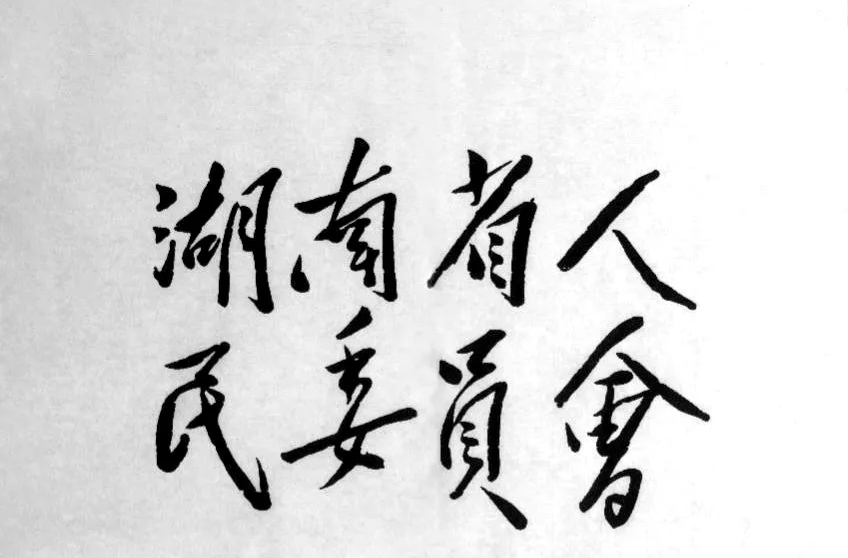 湖南省人
民委員會